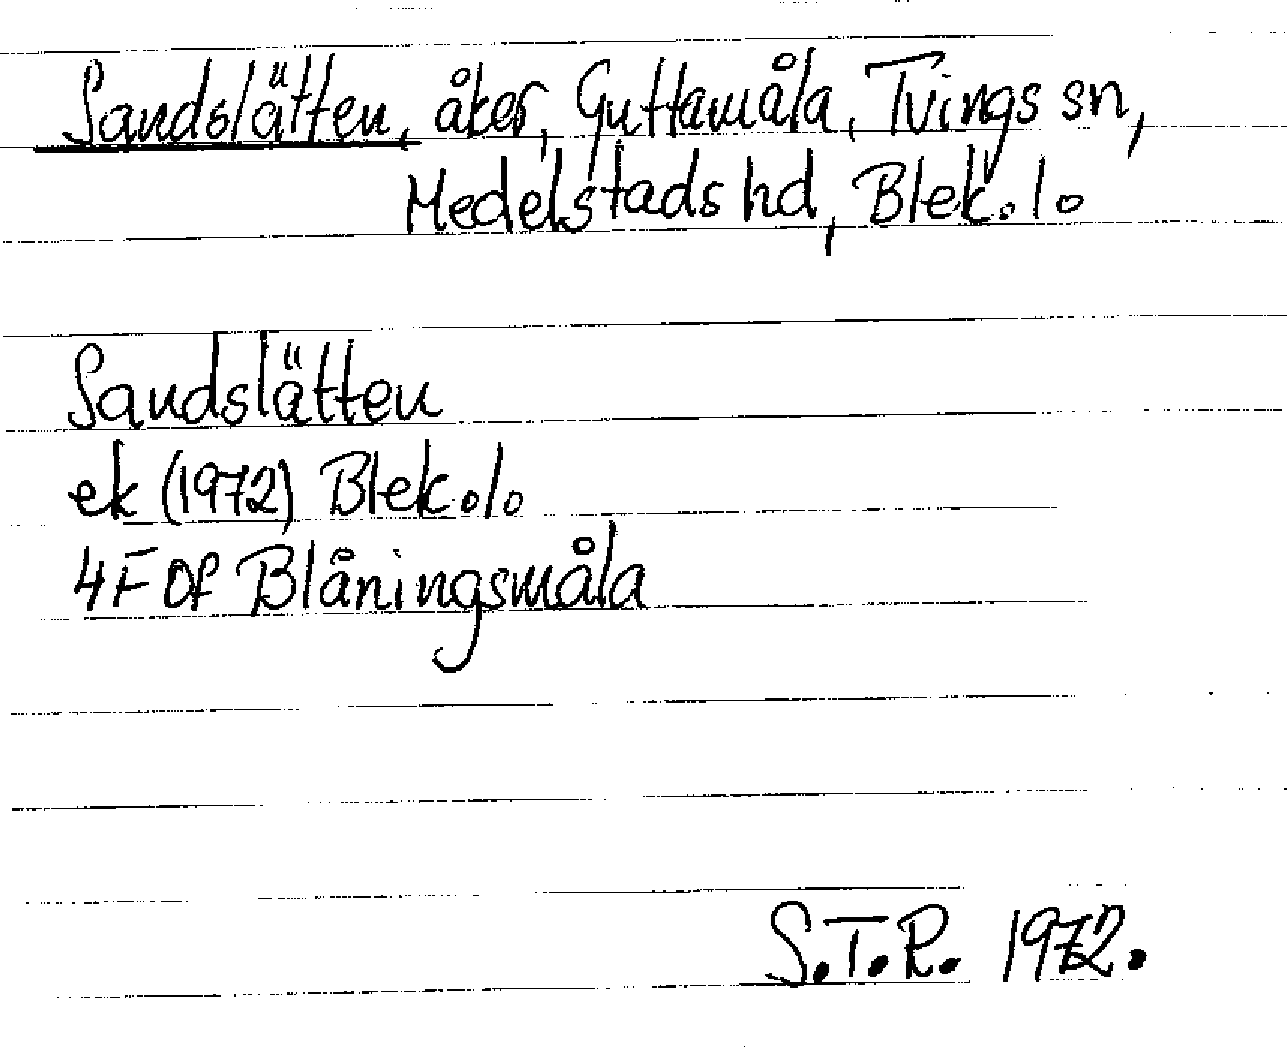 Sandslätten, åker, Guttamåla, Tvings sn,
Medelstads hd, Blek. lo
Sandslätten
ek (1972) Blek. lo
4F 0f Blåningsmåla
S.T.R. 1972.